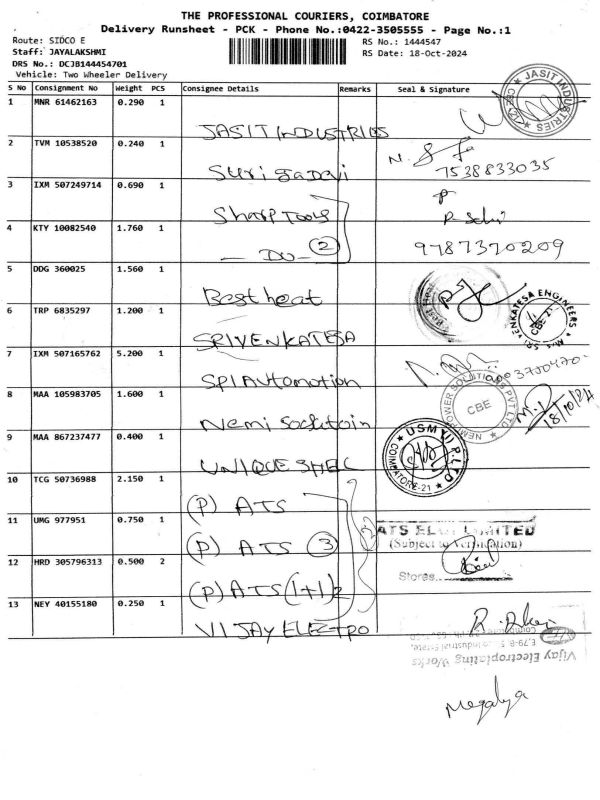 THE PROFESSIONAL COURIERS, COIMBATORE
Delivery Runsheet - PCK - Phone No.:0422-3505555 - Page No.:1
Route: SIDCO E
RS No.: 1444547
Staff: JAYALAKSHMI
RS Date: 18-Oct-2024
DRS No.: DCJB144454701
Vehicle: Two Wheeler Delivery
S No Consignment No Weight PCS Consignee Details Remarks Seal & Signature
1 MNR 61462163 0.290 1 JASIT INDUSTRIES
JASIT INDUSTRIES CBE
2 TVM 10538520 0.240 1
7538833035
3 IXM 507249714 0.690 1 Sharp Tools
4 KTY 10082540 1.760 1 - DO - 2 9787370209
5 DDG 360025 1.560 1 Best heat
6 TRP 6835297 1.200 1 SRIVENKATESA
SRI VENKATESA ENGINEERS CBE
7 IXM 507165762 5.200 1 SPI Automotion
8 MAA 105983705 1.600 1 Nemi
NEMI POWER SOLUTIONS PVT LTD CBE
18/10/24
9 MAA 867237477 0.400 1 UNIQUE SHEL
COIMBATORE-21
10 TCG 50736988 2.150 1 (P) ATS
11 UMG 977951 0.750 1 (P) ATS 3
LIMITED
(Subject to Verification)
12 HRD 305796313 0.500 2 (P) ATS (1+1)2
Stores
13 NEY 40155180 0.250 1 VIJAY ELECTRO
Vijay Electroplating Works